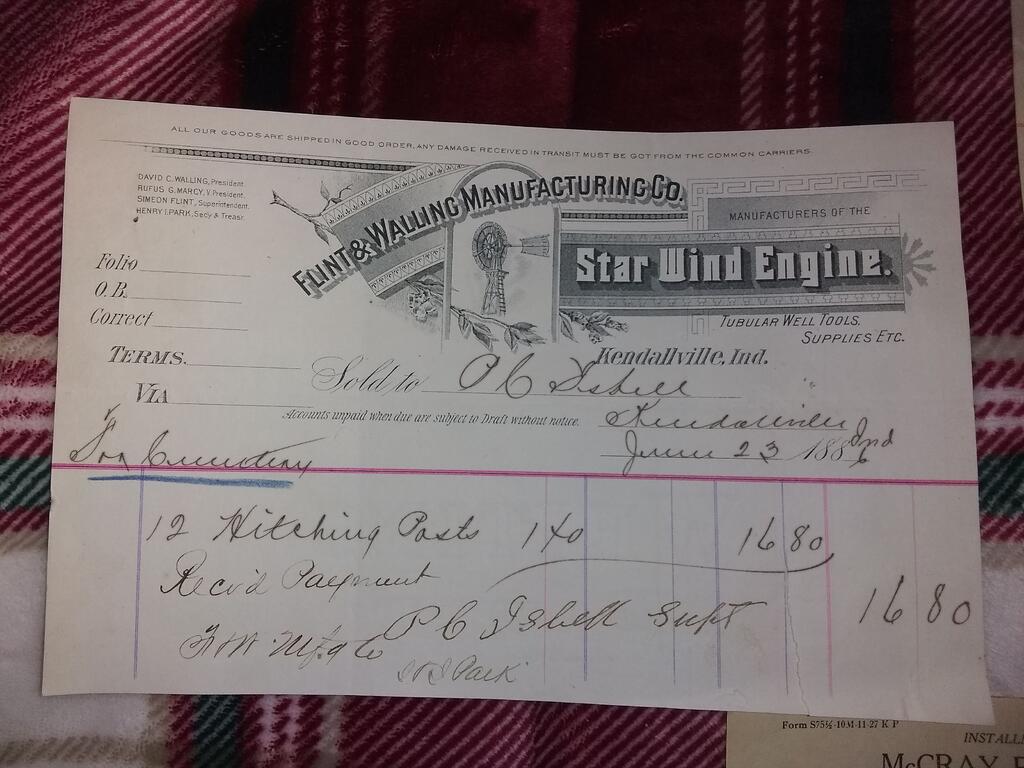 ALL OUR GOODS ARE SHIPPED IN GOOD ORDER, ANY DAMAGE RECEIVED IN TRANSIT MUST BE GOT FROM THE COMMON CARRIERS.
DAVID C. WALLING, President.
RUFUS G. MARCY, V. President.
SIMEON FLINT, Superintendent.
HENRY I. PARK, Secy & Treasr.
FLINT & WALLING MANUFACTURING CO.
MANUFACTURERS OF THE
Star Wind Engine.
TUBULAR WELL TOOLS,
SUPPLIES ETC.
Folio
O.B.
Correct
TERMS.
Kendallville, Ind.
Sold to P C Isbell
VIA
Accounts unpaid when due are subject to Draft without notice.
Kendallville Ind
June 23 1886
For Cemetery
12 Hitching Posts 140 16 80
Rec'd Payment
16 80
P C Isbell Supt
F & W Mfg Co
Park
Form S75½-10M-11-27 K P
INSTALL
McCRAY